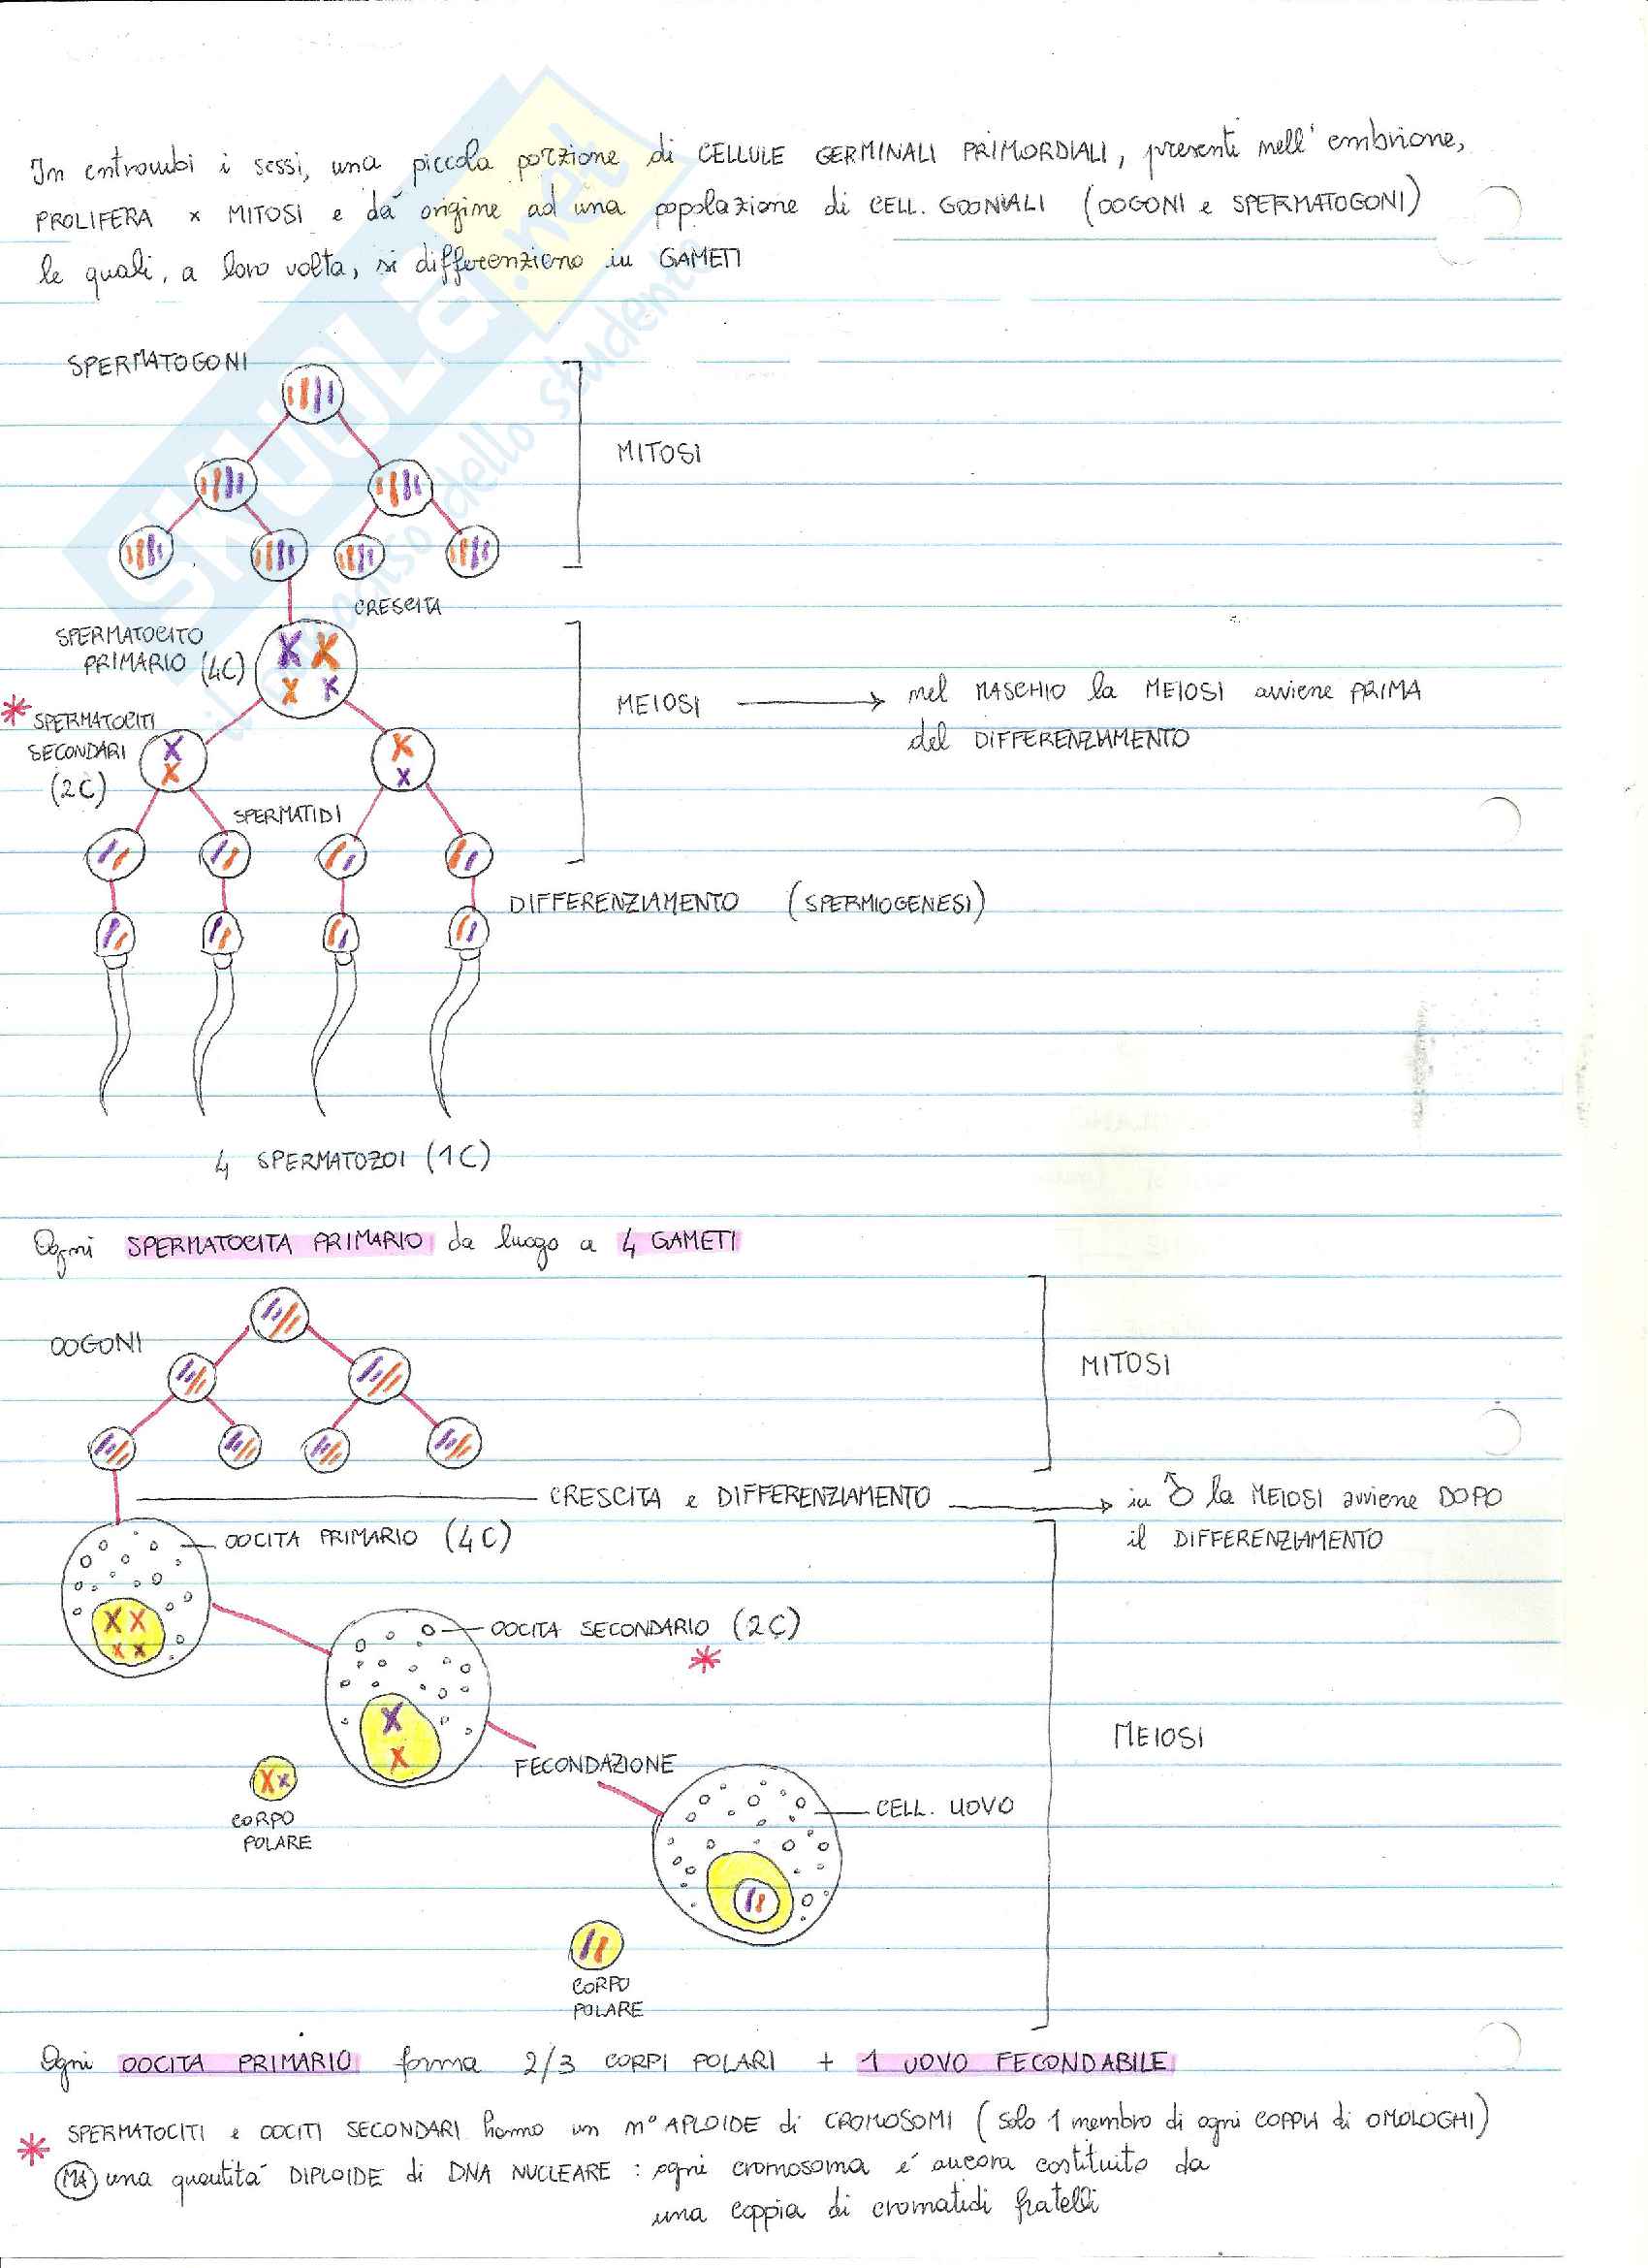 In entrambi i sessi, una piccola porzione di CELLULE GERMINALI PRIMORDIALI, presenti nell' embrione,
PROLIFERA x MITOSI e dà origine ad una popolazione di CELL. GOONIALI (OOGONI e SPERMATOGONI)
le quali, a loro volta, si differenziano in GAMETI
SKUOLA.net
il paradiso dello studente
SPERMATOGONI
MITOSI
CRESCITA
SPERMATOCITO
PRIMARIO (4C)
MEIOSI → nel MASCHIO la MEIOSI avviene PRIMA
del DIFFERENZIAMENTO
* SPERMATOCITI
SECONDARI
(2C)
SPERMATIDI
DIFFERENZIAMENTO (SPERMIOGENESI)
4 SPERMATOZOI (1C)
Ogni SPERMATOCITA PRIMARIO da luogo a 4 GAMETI
OOGONI
MITOSI
CRESCITA e DIFFERENZIAMENTO → in ♂ la MEIOSI avviene DOPO
il DIFFERENZIAMENTO
OOCITA PRIMARIO (4C)
OOCITA SECONDARIO (2C)
*
MEIOSI
FECONDAZIONE
CELL. UOVO
CORPO
POLARE
CORPO
POLARE
Ogni OOCITA PRIMARIO forma 2/3 CORPI POLARI + 1 UOVO FECONDABILE
* SPERMATOCITI e OOCITI SECONDARI hanno un n° APLOIDE di CROMOSOMI (solo 1 membro di ogni COPPIA di OMOLOGHI)
MA una quantità DIPLOIDE di DNA NUCLEARE : ogni cromosoma é ancora costituito da
una coppia di cromatidi fratelli